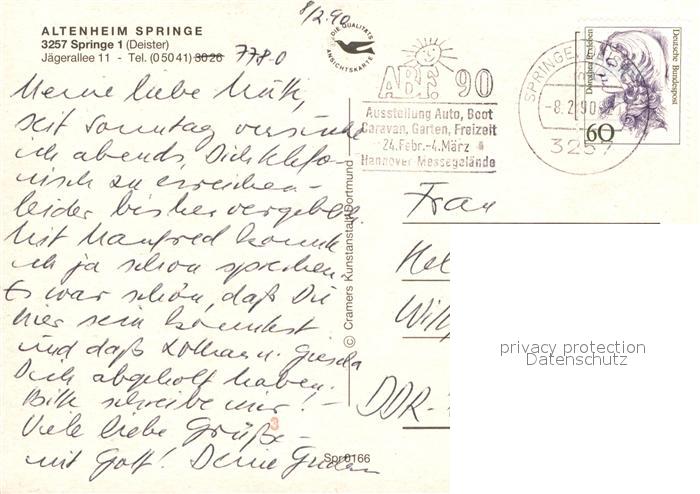 ALTENHEIM SPRINGE
3257 Springe 1 (Deister)
Jägerallee 11 - Tel. (0 50 41) 3026 778-0
8/2.90
DIE QUALITÄTS
ANSICHTSKARTE
Meine liebe
seit Sonntag versuche
ich abends, Dich telefo-
nisch zu erreichen -
leider bisher vergebens.
Mit Manfred konnte
ich ja schon sprechen.
Es war schön, daß Du
hier sein konntest
und daß Lothar u. Gisela
Dich abgeholt haben.
Bitte schreibe mir! -
Viele liebe Grüße -
mit Gott! Deine
3
© Cramers Kunstanstalt Dortmund
Spr 0166
A.B.F. 90
Ausstellung Auto, Boot
Caravan, Garten, Freizeit
24. Febr.-4. März
Hannover Messegelände
SPRINGE
-8.2.90
3257
Dorothea Erxleben
Deutsche Bundespost
60
Frau
Hel
Wil
DDR-
privacy protection
Datenschutz